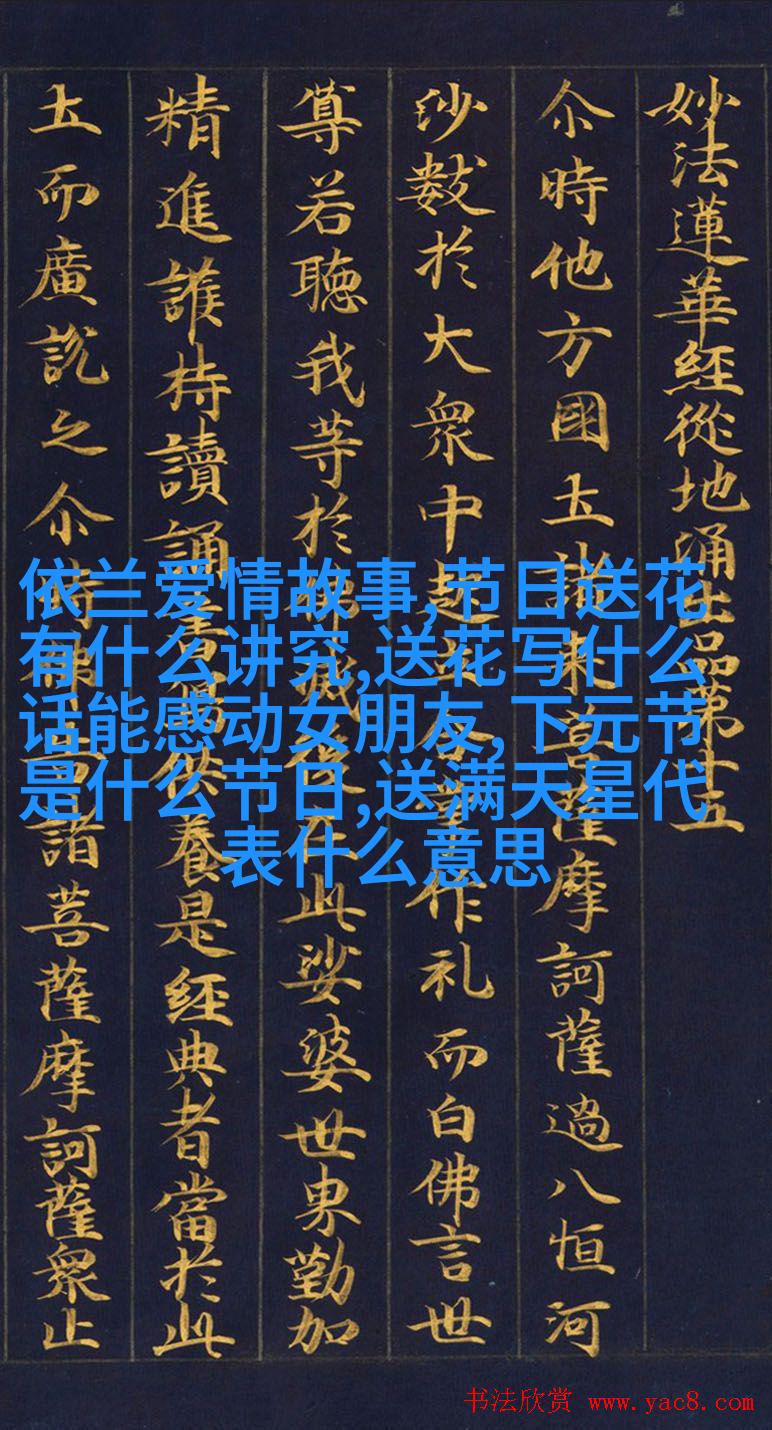 妙法蓮華經從地涌出品第十五
尒時他方國土諸來菩薩摩訶薩過八恒河
沙數於大眾中起立合掌作礼而白佛言世
尊若聽我等於佛滅後在此娑婆世界勤加
精進護持讀誦書寫供養是經典者當於此
土而廣說之尒時佛告諸菩薩摩訶薩眾止
依兰爱情故事,节日送花
有什么讲究,送花写什么
话能感动女朋友,下元节
是什么节日,送满天星代
表什么意思
书法欣赏 www.yac8.com